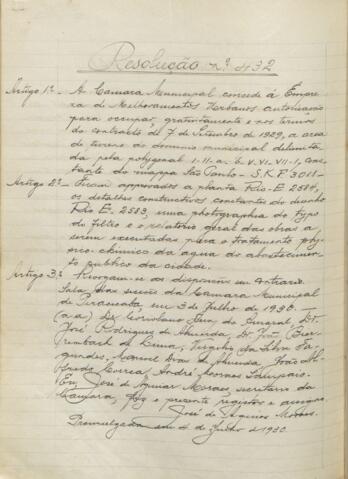 Resolução nº 432
Artigo 1º- A Camara Municipal concede á Empre-
sa de Melhoramentos Urbanos autorisação
para occupar, gratuitamente e nos termos
do contracto de 7 de Setembro de 1929, a area
de terreno do dominio municipal delimita-
da pela polygonal I-II-a-b-V-VI-VII-I, cons-
tante do mappa São Paulo - S.K.P 3011-
Artigo 2º- Ficam approvados a planta Rio-E 2584,
os detalhes constructivos constantes do desenho
Rio E. 2583, uma photographia do typo
de filtro e o relatorio geral das obras a
serem executadas para o tratamento phy-
sico-chimico da agua do abastecimento
publico da cidade.
Artigo 3º- Revogam-se as disposições em contrario.
Sala das sessões da Camara Municipal
de Piracicaba, em 3 de Julho de 1930.-
(aa) Dr Coriolano Ferraz do Amaral, Dr.
José Rodrigues de Almeida, Dr. João
de Lima, da Silva Fa-
gundes, Manoel Dias de Almeida, João Al-
fredo Correa, André Moraes Sampaio.
Eu, José de Aguiar Moraes, secretario da
Camara, fiz o presente registro e assigno.
José de Aguiar Moraes.
Promulgada em 4 de Julho de 1930.